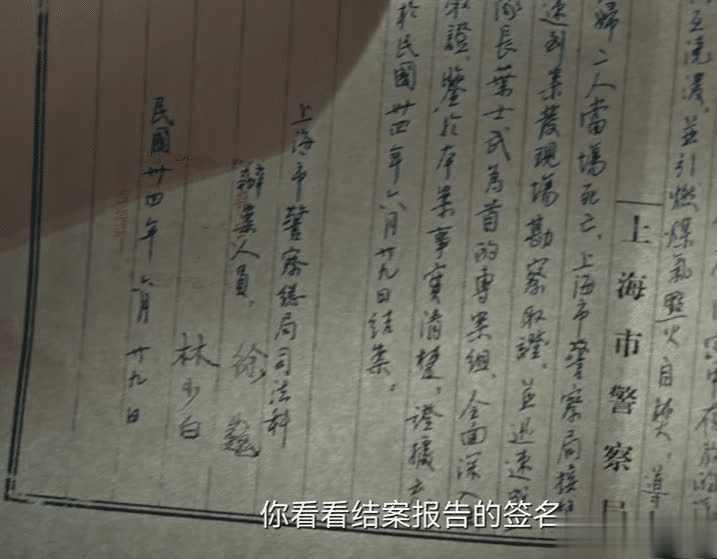 中存放的
互澆潑，並引燃煤氣點火自焚，導
上海市警察
婦二人當場死亡，上海市警察局接
速到案發現場勘察取證，並迅速
隊長葉士武為首的專案組，全面深入
取證，鑒於本案事實清楚，證據
於民國卅四年六月廿九日結案。
上海市警察總局司法科
辦案人員，徐巍
林少白
民國卅四年六月廿九日
你看看结案报告的签名